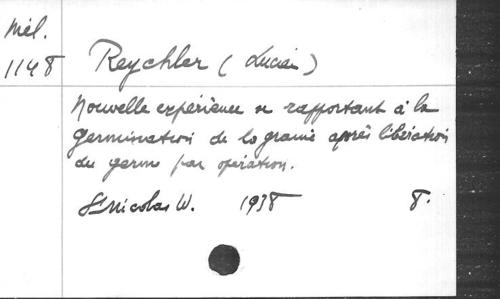 Mél.
1148 Reychler (Lucien)
Nouvelle expérience se rapportant à la
germination de la graine après libération
du germe par opération.
St Nicolas W. 1938 8.